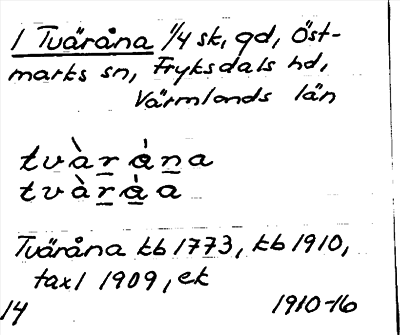 1 Tväråna 1/4 sk, gd, Öst-
marks sn, Fryksdals hd,
Värmlands län
tvàr̲å̀n̲a
tvàr̲å̲̀a
Tväråna kb 1773, kb 1910,
taxl 1909, ek
14 1910-16